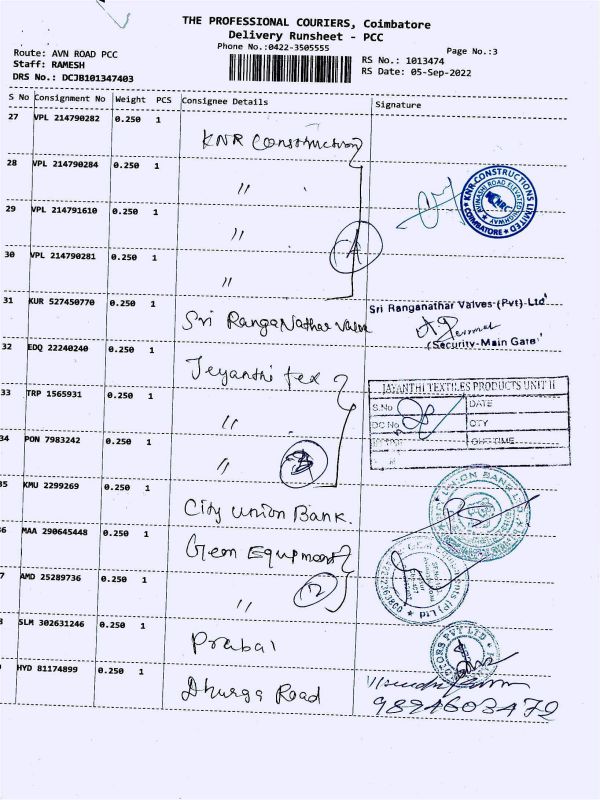 THE PROFESSIONAL COURIERS, Coimbatore
Delivery Runsheet - PCC
Phone No.:0422-3505555
Page No.:3
Route: AVN ROAD PCC
Staff: RAMESH
DRS No.: DCJB101347403
RS No.: 1013474
RS Date: 05-Sep-2022
S No Consignment No Weight PCS Consignee Details Signature
27 VPL 214790282 0.250 1
KNR Construction
28 VPL 214790284 0.250 1
"
KNR-CONSTRUCTIONS LIMITED
AVINASHI ROAD ELEVATED HIGHWAY
KNRC
COIMBATORE
29 VPL 214791610 0.250 1
"
4
30 VPL 214790281 0.250 1
"
31 KUR 527450770 0.250 1
Sri RangaNathar Valve
Sri Ranganathar Valves (Pvt) Ltd
(Security-Main Gate)
32 EDQ 22240240 0.250 1
Jeyanthi tex
JAYANTHI TEXTILES PRODUCTS UNIT II
33 TRP 1565931 0.250 1
"
S.No DATE
DC No QTY
OUT TIME
34 PON 7983242 0.250 1
"
3
35 KMU 2299269 0.250 1
City Union Bank.
UNION BANK LTD
36 MAA 290645448 0.250 1
Gem Equipment
(P) Ltd
37 AMD 25289736 0.250 1
"
2
38 SLM 302631246 0.250 1
Prabal
PVT LTD
HYD 81174899 0.250 1
Dhurga Road
9894603472